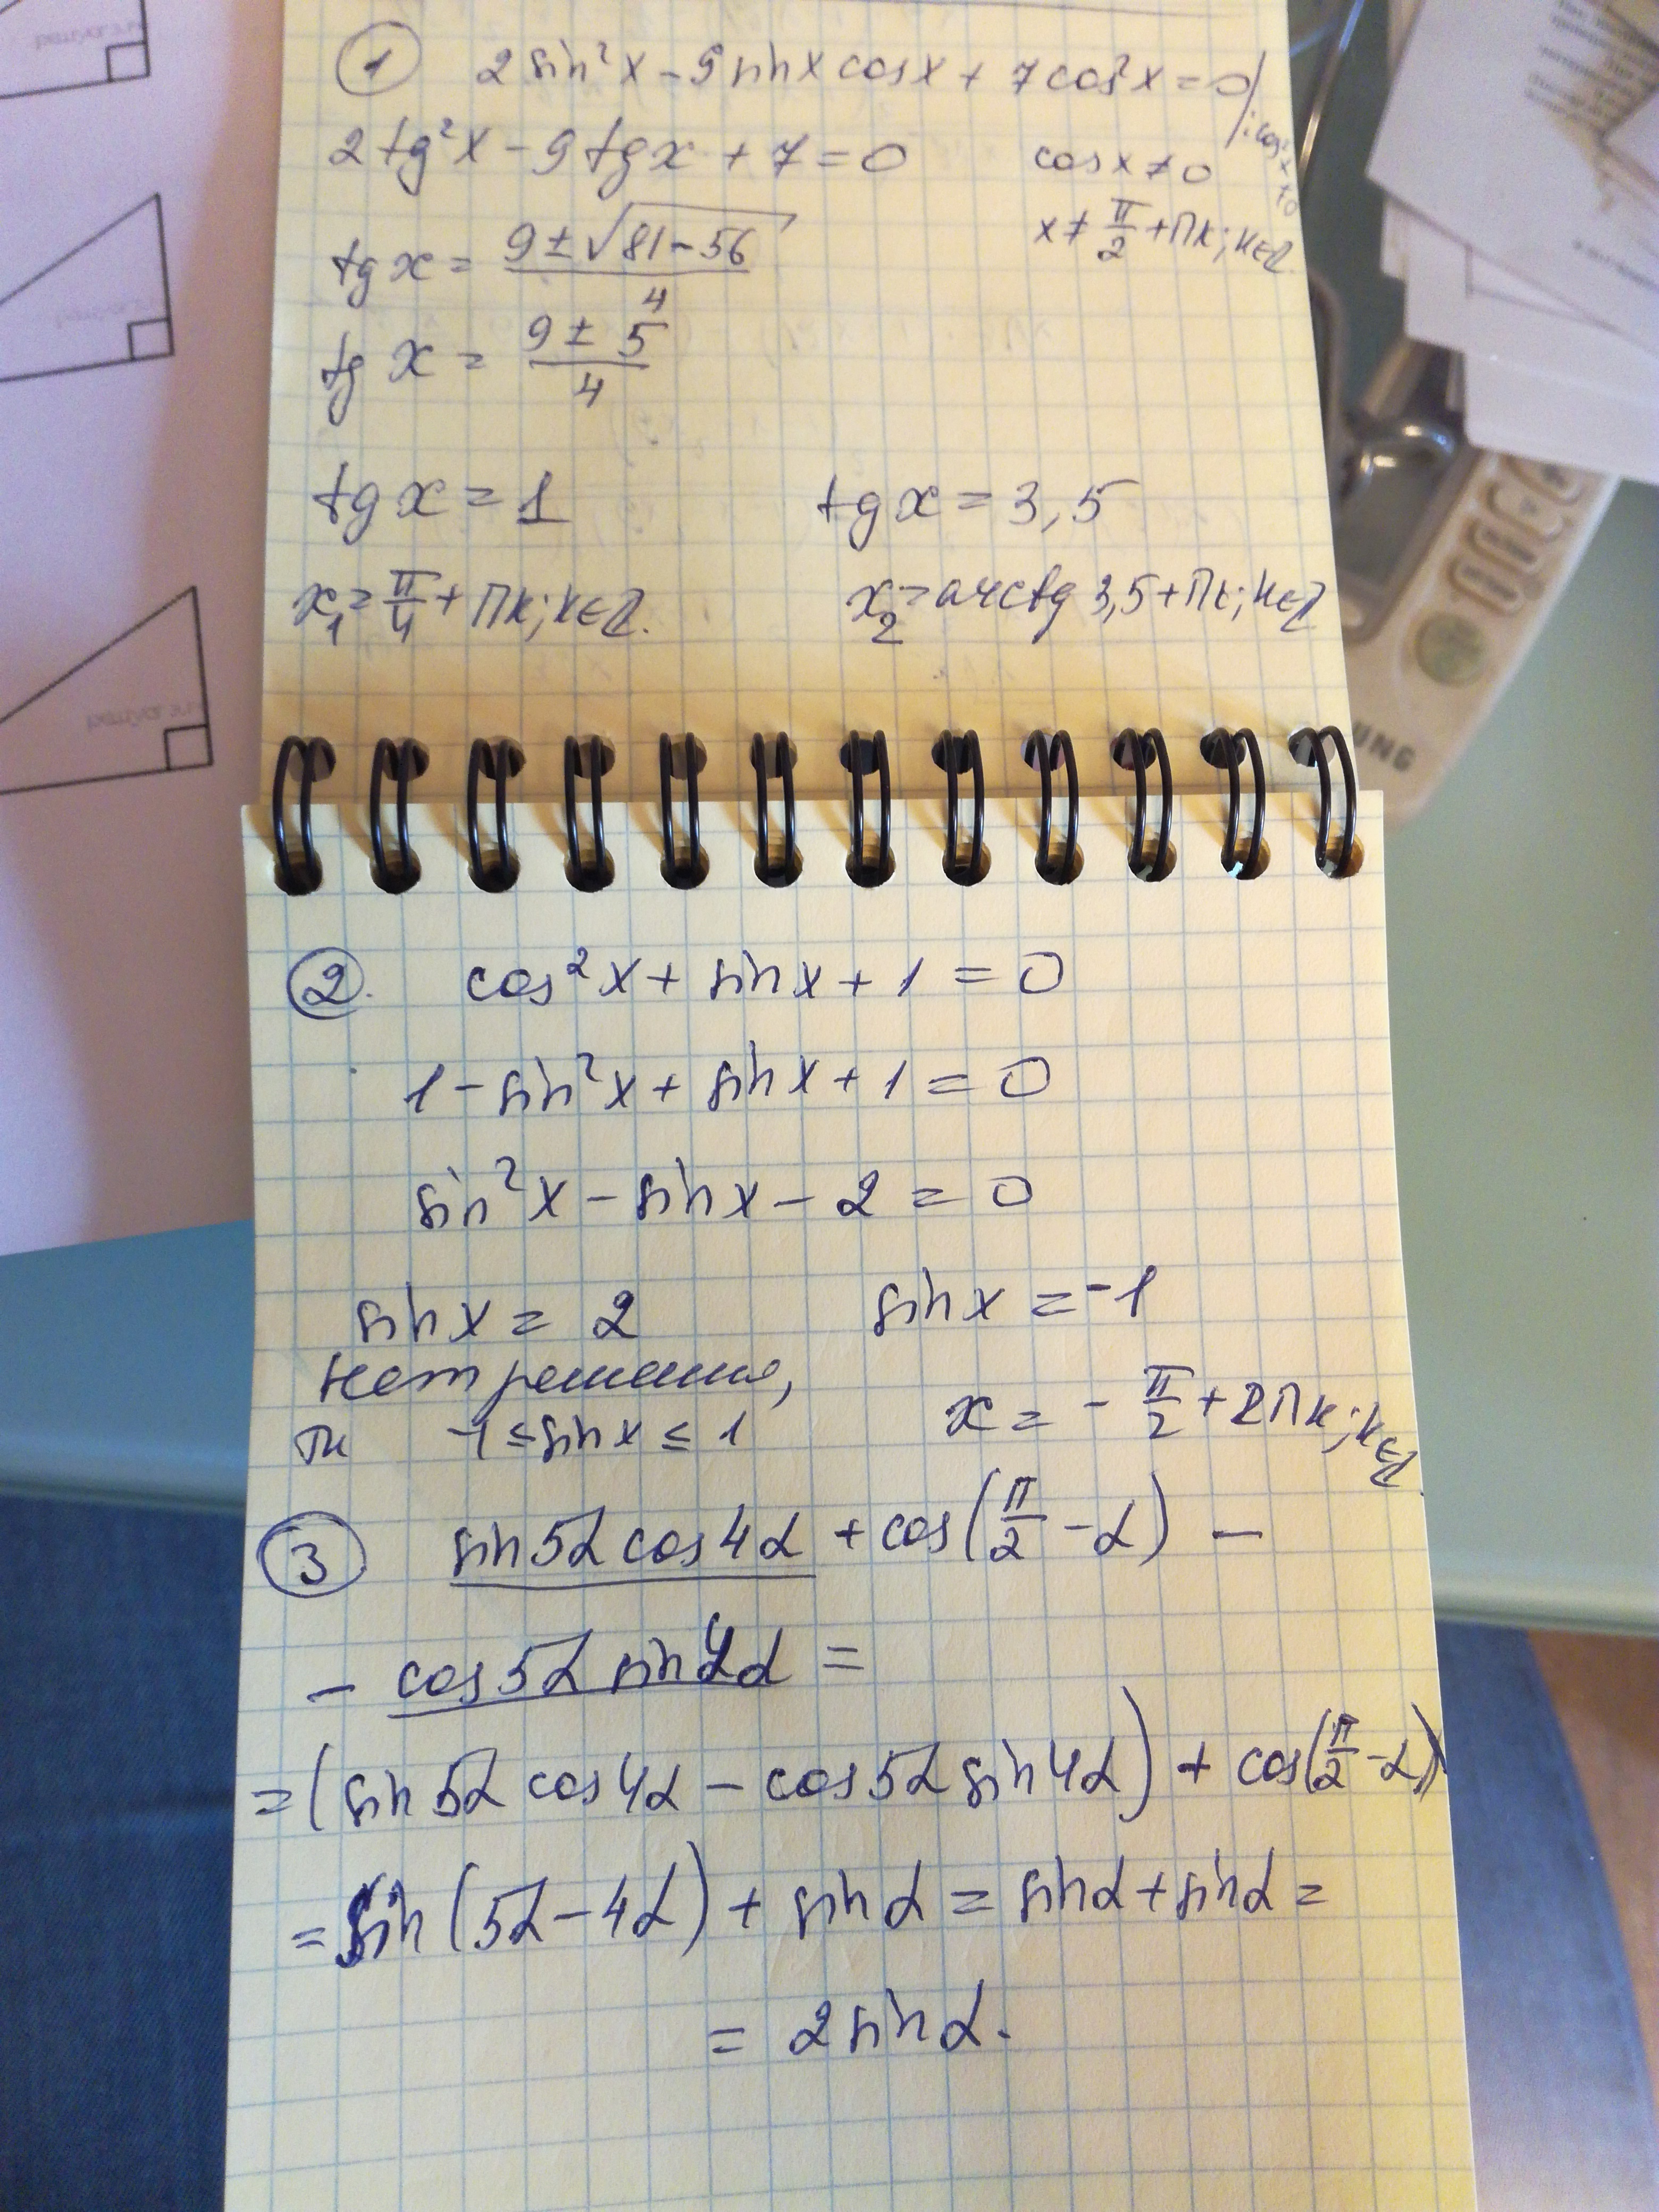 1 2 sin²x - 9 sinx cosx + 7 cos²x = 0 / : cos²x ≠ 0
2 tg²x - 9 tgx + 7 = 0 cosx ≠ 0
x ≠ π/2 + πk; k∈Z.
tgx = (9 ± √81-56)/4
tgx = (9 ± 5)/4
tgx = 1 tgx = 3,5
x₁ = π/4 + πk; k∈Z. x₂ = arctg 3,5 + πk; k∈Z
UNG
2. cos²x + sinx + 1 = 0
1 - sin²x + sinx + 1 = 0
sin²x - sinx - 2 = 0
sinx = 2 sinx = -1
нет решения,
тк -1 ≤ sinx ≤ 1 x = -π/2 + 2πk; k∈Z.
3 sin5α cos4α + cos(π/2 - α) -
- cos5α sin4α =
= (sin5α cos4α - cos5α sin4α) + cos(π/2 - α)
= sin(5α - 4α) + sinα = sinα + sinα =
= 2 sinα.